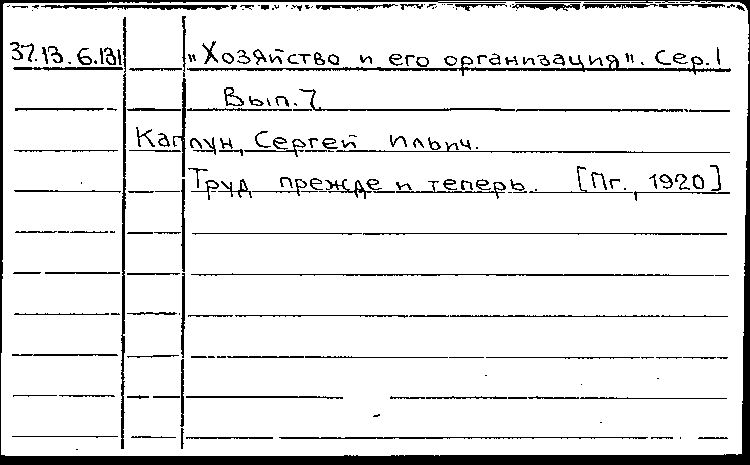 37.13.6.131 „Хозяйство и его организация". Сер.1
Вып.7
Каплун, Сергей Ильич.
Труд прежде и теперь. [Пг., 1920]